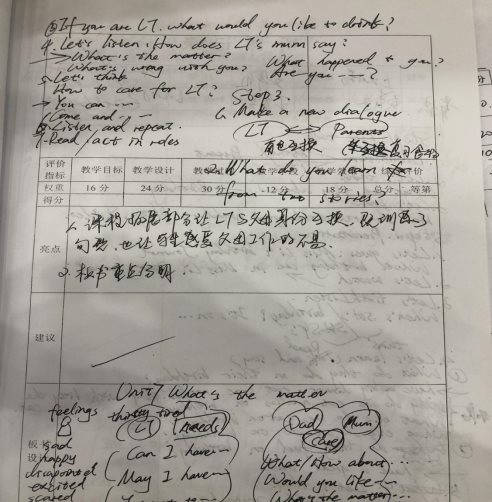 ③ If you are LT. what would you like to drink?
4. Let's listen. How does LT's mum say?
→ What's the matter? What happened to you?
What's wrong with you? Are you ---?
5. Let's think
How to care for LT? Step 3.
→ You can --- 1. Make a new dialogue
Come and --- LT Parents
6. Listen and repeat.
7. Read/act in roles
2. What do you learn
from two stories.
评价指标 教学目标 教学设计
权重 16分 24分 30分 12分 18分 总分 等第
得分
亮点
1. 课程拓展部分让LT与父母身份互换,既训练了
句型,也让学生感受父母工作的不易.
2. 板书重点分明
建议
Unit 7 What's the matter
feelings thirsty tired
LT needs Dad Mum
care
sad
happy Can I have--- What/How about---
disappointed May I have--- Would you like---
excited What's the matter---
scared